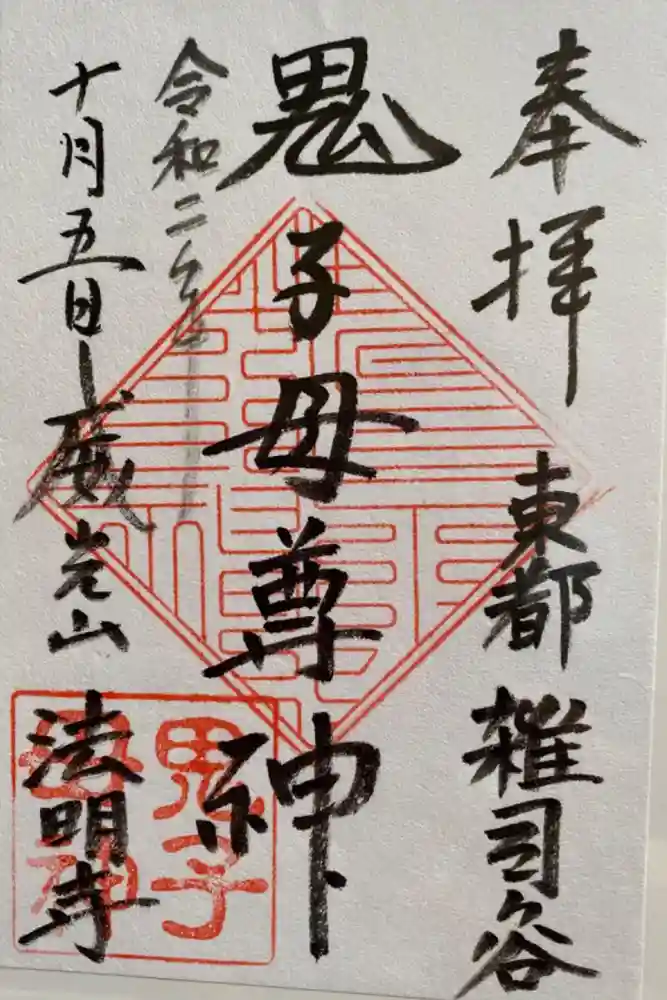 奉拝
東都 雑司谷
鬼子母尊神
令和二年
十月五日
威光山 法明寺
鬼子
母神